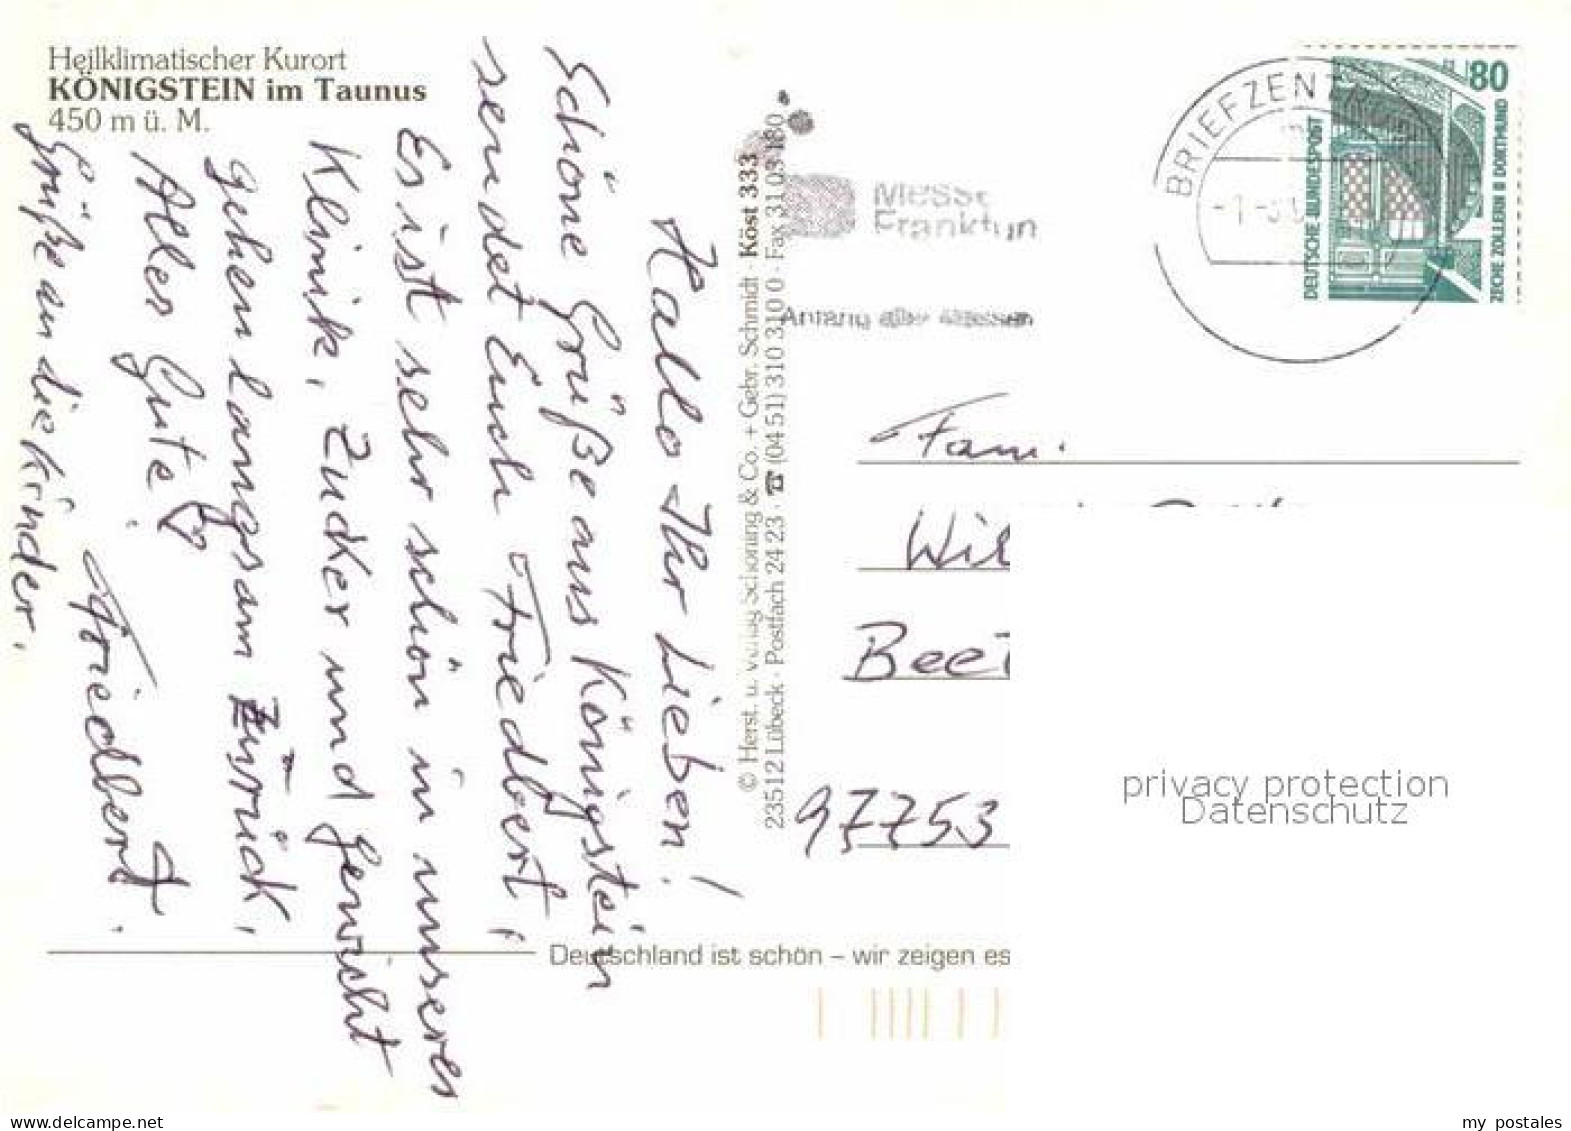 Heilklimatischer Kurort
KÖNIGSTEIN im Taunus
450 m ü. M.
Hallo Ihr Lieben!
Schöne Grüße aus Königstein
sendet Euch Friedbert,
Es ist sehr schön in unserer
Klinik, Zucker und Gewicht
gehen langsam zurück,
Alles Gute
Friedbert.
Grüße an die Kinder.
© Herst. u. Verlag Schöning & Co. + Gebr. Schmidt · Köst 333
23512 Lübeck · Postfach 24 23 · ☎ (04 51) 310 310 0 · Fax 31 03 180
Messe
Frankfurt
BRIEFZENTR
80
DEUTSCHE BUNDESPOST
ZECHE ZOLLERN II DORTMUND
Fam.
Wil
Beet
97753
privacy protection
Datenschutz
Deutschland ist schön – wir zeigen es
delcampe.net
my_postales